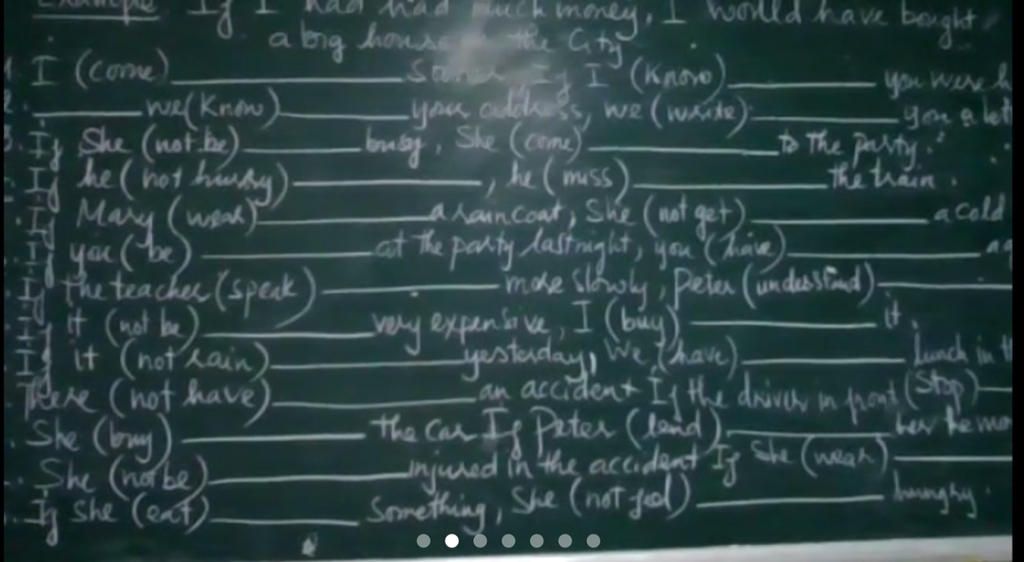 Example If I had had much money, I would have bought
a big house the City
I (come) ________ If I (know) ________ you were
____ we (know) ________ your address, we (write) ________ you a
If she (not be) ________ busy, she (come) ________ to the party.
If he (not hurry) ________, he (miss) ________ the train.
If Mary (wear) ________ a raincoat, she (not get) ________ a cold
If you (be) ________ at the party last night, you (have) ________
If the teacher (speak) ________ more slowly, Peter (understand) ________
If it (not be) ________ very expensive, I (buy) ________ it.
If it (not rain) ________ yesterday, we (have) ________ lunch in
There (not have) ________ an accident If the driver in front (stop) ____
She (buy) ________ the car If Peter (lend) ________ her he
She (not be) ________ injured in the accident If She (wear) ________
If she (eat) ________ something, she (not feel) ________ hungry.